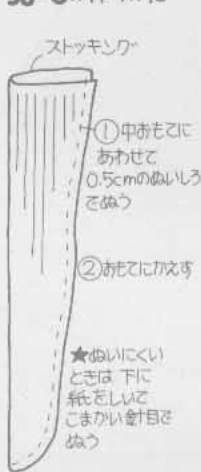 ストッキング
①中おもてに
あわせて
0.5cmのぬいしろ
でぬう
②おもてにかえす
★ぬいにくい
ときは 下に
紙をしいて
こまかい針目で
ぬう